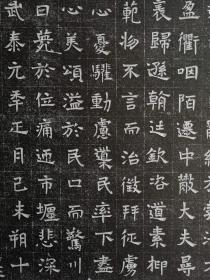 盈衢咽陌遷中散大夫尋
襄歸遜翰迋欽洛道素抑
範物不言而治徵拜征虜
心憂驩動慮藁民率下盡
心美頌溢於民口而驚川
曰薨於位痛迊市壥悲深
武泰元年正月己未朔十